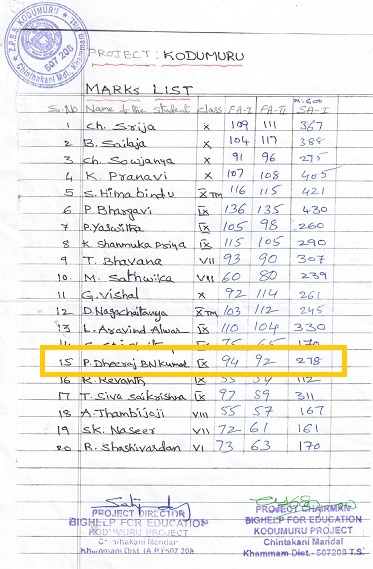 T.P.S.S. KODUMURU
Chinthakani Mdl., Khammam
507 208
PROJECT: KODUMURU
MARKS LIST
M:600
S.No Name of the student class FA-I FA-II SA-I
1 Ch. Srija X 109 111 367
2 B. Sailaja X 104 117 388
3 Ch. Soujanya X 91 96 275
4 K. Pranavi X 107 108 405
5 S. Himabindu X TM 116 115 421
6 P. Bhargavi IX 136 135 430
7 P. Yaswitha IX 105 98 260
8 K. Shanmuka Priya IX 115 105 290
9 T. Bhavana VII 93 90 307
10. M. Sathwika VII 60 80 239
11 G. Vishal X 92 114 261
12 D. Nagachaitanya X TM 103 112 245
13 L. Aravind Alwar IX 110 104 330
14 65 170
15 P. Dheeraj BN Kumar IX 94 92 278
16 K. Revanth IX 55 54 112
17 T. Siva Saikrishna IX 97 89 311
18 A. Thambijaji VIII 55 57 167
19 SK. Naseer VII 72 61 161
20 R. Shashivardan VI 73 63 170
PROJECT DIRECTOR
BIGHELP FOR EDUCATION
KODUMURU PROJECT
Chintakani Mandal
Khammam Dist. (A.P.) 507 208
PROJECT CHAIRMAN
BIGHELP FOR EDUCATION
KODUMURU PROJECT
Chintakani Mandal
Khammam Dist.- 507208 T.S.